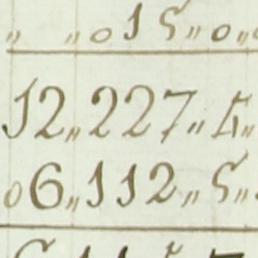 „ „015„0„
12„227„5„
06„112„5„